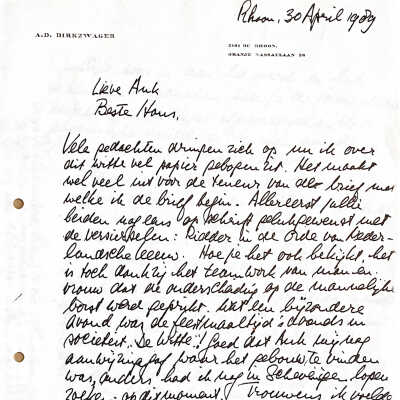 Rhoon, 30 April 1989
A.D. DIRKZWAGER
3161 HC RHOON,
ORANJE NASSAULAAN 28
Lieve Ank
Beste Hans,
Vele gedachten dringen zich op nu ik over
dit witte vel papier gebogen zit. Het maakt
wel veel uit voor de teneur van de brief met
welke ik de brief begin. Allereerst jullie
beiden nog eens op schrift gelukgewenst met
de versierselen: Ridder in de Orde van Neder-
landsche Leeuw. Hoe je het ook bekijkt, het
is toch dankzij het teamwork van man en
vrouw dat die onderscheiding op de mannelijke
borst werd geprikt. Wat een bijzondere
avond was de feestmaaltijd 's avonds in
societeit "De Witte"! Goed dat Ank mij nog
aanwijzing gaf waar het gebouw te vinden
was, anders had ik nog in Scheveningen lopen
zoeken op dit moment. Trouwens ik voelde